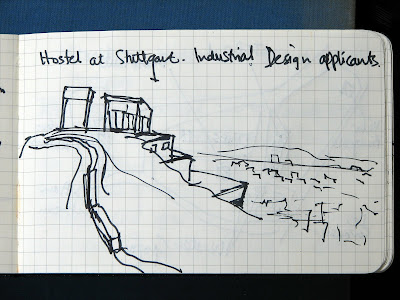 Hostel at Stuttgart. Industrial Design applicants.